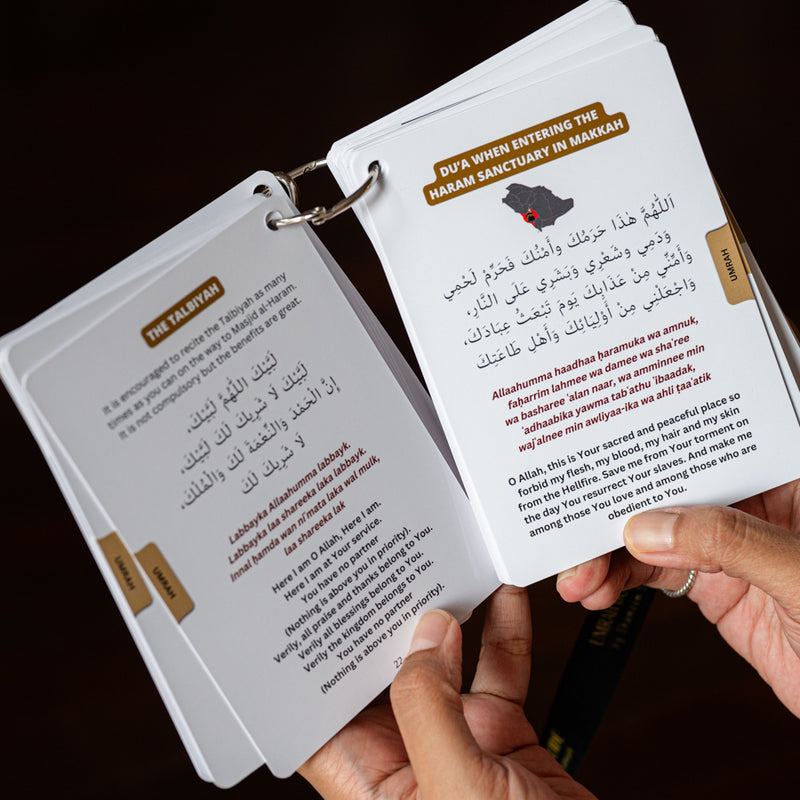 THE TALBIYAH
It is encouraged to recite the Talbiyah as many
times as you can on the way to Masjid al-Haram.
It is not compulsory but the benefits are great.
لَبَّيْكَ اللَّهُمَّ لَبَّيْكَ،
لَبَّيْكَ لَا شَرِيكَ لَكَ لَبَّيْكَ،
إِنَّ الْحَمْدَ وَالنِّعْمَةَ لَكَ وَالْمُلْكَ،
لَا شَرِيكَ لَكَ
Labbayka Allaahumma labbayk,
Labbayka laa shareeka laka labbayk,
Innal ḥamda wan ni'mata laka wal mulk,
laa shareeka lak
Here I am O Allah, Here I am.
Here I am at Your service.
You have no partner
(Nothing is above you in priority).
Verily, all praise and thanks belong to You.
Verily all blessings belong to You.
Verily the kingdom belongs to You.
You have no partner
(Nothing is above you in priority).
22
UMRAH
UMRAH
DU'A WHEN ENTERING THE
HARAM SANCTUARY IN MAKKAH
اَللّٰهُمَّ هٰذَا حَرَمُكَ وَأَمْنُكَ فَحَرِّمْ لَحْمِي
وَدَمِي وَشَعْرِي وَبَشَرِي عَلَى النَّارِ،
وَأَمِّنِّي مِنْ عَذَابِكَ يَومَ تَبْعَثُ عِبَادَكَ،
وَاجْعَلْنِي مِنْ أَوْلِيَائِكَ وَأَهْلِ طَاعَتِكَ
Allaahumma haadhaa ḥaramuka wa amnuk,
faḥarrim lahmee wa damee wa sha'ree
wa basharee 'alan naar, wa amminnee min
'adhaabika yawma tab'athu 'ibaadak,
waj'alnee min awliyaa-ika wa ahli ṭaa'atik
O Allah, this is Your sacred and peaceful place so
forbid my flesh, my blood, my hair and my skin
from the Hellfire. Save me from Your torment on
the day You resurrect Your slaves. And make me
among those You love and among those who are
obedient to You.
UMRAH